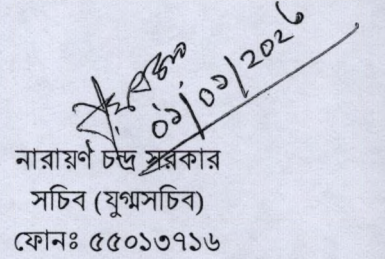 ০১/০১/২০২৬
নারায়ণ চন্দ্র সরকার
সচিব (যুগ্মসচিব)
ফোনঃ ৫৫০১৩৭১৬